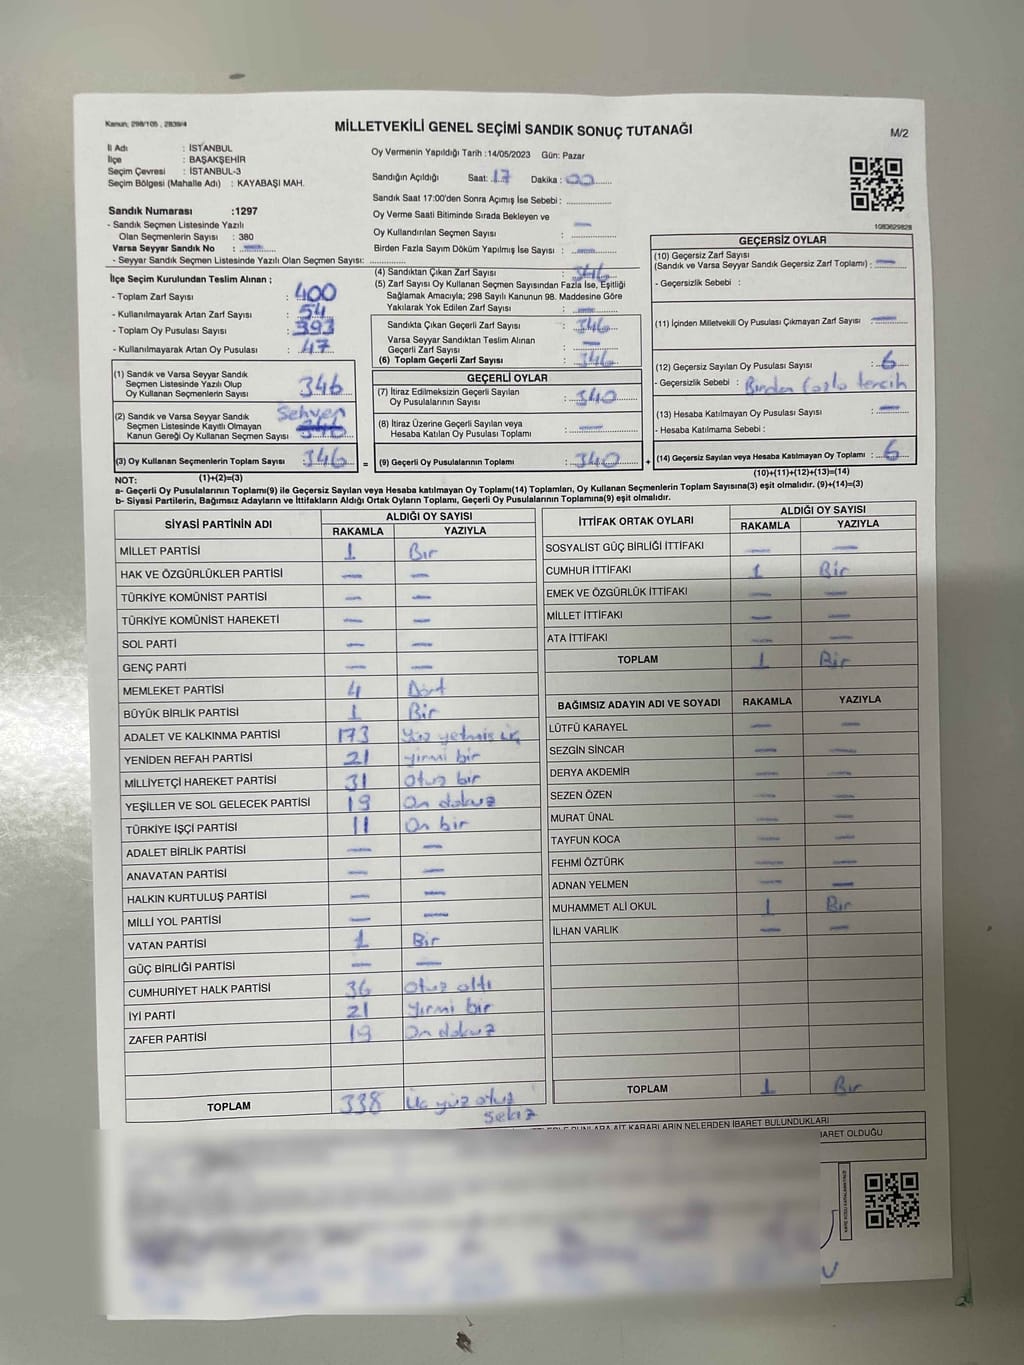 Kanun; 298/105 , 2839/4
MİLLETVEKİLİ GENEL SEÇİMİ SANDIK SONUÇ TUTANAĞI
M/2
İl Adı : İSTANBUL
İlçe : BAŞAKŞEHİR
Seçim Çevresi : İSTANBUL-3
Seçim Bölgesi (Mahalle Adı) : KAYABAŞI MAH.
Sandık Numarası :1297
- Sandık Seçmen Listesinde Yazılı
Olan Seçmenlerin Sayısı : 380
Varsa Seyyar Sandık No : —
- Seyyar Sandık Seçmen Listesinde Yazılı Olan Seçmen Sayısı: ............
Oy Vermenin Yapıldığı Tarih :14/05/2023 Gün: Pazar
Sandığın Açıldığı Saat: 17 Dakika : 00
Sandık Saat 17:00'den Sonra Açımış İse Sebebi : ............
Oy Verme Saati Bitiminde Sırada Bekleyen ve
Oy Kullandırılan Seçmen Sayısı : —
Birden Fazla Sayım Döküm Yapılmış İse Sayısı : —
1083629828
İlçe Seçim Kurulundan Teslim Alınan ;
- Toplam Zarf Sayısı : 400
- Kullanılmayarak Artan Zarf Sayısı : 54
- Toplam Oy Pusulası Sayısı : 393
- Kullanılmayarak Artan Oy Pusulası : 47
(1) Sandık ve Varsa Seyyar Sandık
Seçmen Listesinde Yazılı Olup
Oy Kullanan Seçmenlerin Sayısı 346
(2) Sandık ve Varsa Seyyar Sandık Sehven
Seçmen Listesinde Kayıtlı Olmayan
Kanun Gereği Oy Kullanan Seçmen Sayısı 346
(3) Oy Kullanan Seçmenlerin Toplam Sayısı : 346 =
(4) Sandıktan Çıkan Zarf Sayısı : 346
(5) Zarf Sayısı Oy Kullanan Seçmen Sayısından Fazla İse, Eşitliği
Sağlamak Amacıyla; 298 Sayılı Kanunun 98. Maddesine Göre
Yakılarak Yok Edilen Zarf Sayısı : —
Sandıkta Çıkan Geçerli Zarf Sayısı : 346
Varsa Seyyar Sandıktan Teslim Alınan
Geçerli Zarf Sayısı : —
(6) Toplam Geçerli Zarf Sayısı : 346
GEÇERLİ OYLAR
(7) İtiraz Edilmeksizin Geçerli Sayılan
Oy Pusulalarının Sayısı : 340
(8) İtiraz Üzerine Geçerli Sayılan veya
Hesaba Katılan Oy Pusulası Toplamı : —
(9) Geçerli Oy Pusulalarının Toplamı : 340 +
GEÇERSİZ OYLAR
(10) Geçersiz Zarf Sayısı
(Sandık ve Varsa Seyyar Sandık Geçersiz Zarf Toplamı) : —
- Geçersizlik Sebebi :
(11) İçinden Milletvekili Oy Pusulası Çıkmayan Zarf Sayısı : —
(12) Geçersiz Sayılan Oy Pusulası Sayısı : 6
- Geçersizlik Sebebi : Birden fazla tercih
(13) Hesaba Katılmayan Oy Pusulası Sayısı : —
- Hesaba Katılmama Sebebi :
(14) Geçersiz Sayılan veya Hesaba Katılmayan Oy Toplamı : 6
NOT: (1)+(2)=(3) (10)+(11)+(12)+(13)=(14)
a- Geçerli Oy Pusulalarının Toplamı(9) ile Geçersiz Sayılan veya Hesaba katılmayan Oy Toplamı(14) Toplamları, Oy Kullanan Seçmenlerin Toplam Sayısına(3) eşit olmalıdır. (9)+(14)=(3)
b- Siyasi Partilerin, Bağımsız Adayların ve İttifakların Aldığı Ortak Oyların Toplamı, Geçerli Oy Pusulalarının Toplamına(9) eşit olmalıdır.
SİYASİ PARTİNİN ADI ALDIĞI OY SAYISI
RAKAMLA YAZIYLA
MİLLET PARTİSİ 1 Bir
HAK VE ÖZGÜRLÜKLER PARTİSİ — —
TÜRKİYE KOMÜNİST PARTİSİ — —
TÜRKİYE KOMÜNİST HAREKETİ — —
SOL PARTİ — —
GENÇ PARTİ — —
MEMLEKET PARTİSİ 4 Dört
BÜYÜK BİRLİK PARTİSİ 1 Bir
ADALET VE KALKINMA PARTİSİ 173 Yüz yetmiş üç
YENİDEN REFAH PARTİSİ 21 yirmi bir
MİLLİYETÇİ HAREKET PARTİSİ 31 otuz bir
YEŞİLLER VE SOL GELECEK PARTİSİ 19 On dokuz
TÜRKİYE İŞÇİ PARTİSİ 11 On bir
ADALET BİRLİK PARTİSİ — —
ANAVATAN PARTİSİ — —
HALKIN KURTULUŞ PARTİSİ — —
MİLLİ YOL PARTİSİ — —
VATAN PARTİSİ 1 Bir
GÜÇ BİRLİĞİ PARTİSİ — —
CUMHURİYET HALK PARTİSİ 36 otuz altı
İYİ PARTİ 21 Yirmi bir
ZAFER PARTİSİ 19 On dokuz
TOPLAM 338 Üç yüz otuz
sekiz
İTTİFAK ORTAK OYLARI ALDIĞI OY SAYISI
RAKAMLA YAZIYLA
SOSYALİST GÜÇ BİRLİĞİ İTTİFAKI — —
CUMHUR İTTİFAKI 1 Bir
EMEK VE ÖZGÜRLÜK İTTİFAKI — —
MİLLET İTTİFAKI — —
ATA İTTİFAKI — —
TOPLAM 1 Bir
BAĞIMSIZ ADAYIN ADI VE SOYADI RAKAMLA YAZIYLA
LÜTFÜ KARAYEL — —
SEZGİN SİNCAR — —
DERYA AKDEMİR — —
SEZEN ÖZEN — —
MURAT ÜNAL — —
TAYFUN KOCA — —
FEHMİ ÖZTÜRK — —
ADNAN YELMEN — —
MUHAMMET ALİ OKUL 1 Bir
İLHAN VARLIK — —
TOPLAM 1 Bir
BUNLARA AİT KARARLARIN NELERDEN İBARET BULUNDUKLARI
OLDUĞU